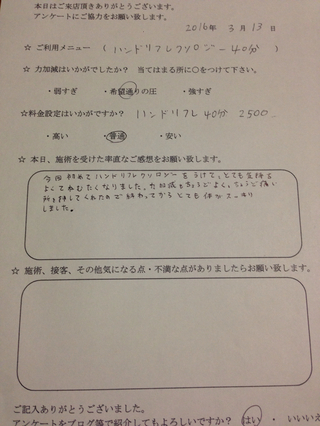 本日はご来店頂きありがとうございます。
アンケートにご協力をお願い致します。
2016年 3月 13日
☆ ご利用メニュー ( ハンドリフレクソロジー40分 )
☆ 力加減はいかがでしたか? 当てはまる所に○をつけて下さい。
・弱すぎ ・希望通りの圧 ・強すぎ
☆料金設定はいかがですか? ハンドリフレ40分 2500
・高い ・普通 ・安い
☆ 本日、施術を受けた率直なご感想をお願い致します。
今回初めてハンドリフレクソロジーをうけて、とても気持ち
よくてねむたくなりました。力加減もちょうどよく、ちょうど痛い
所を押してくれたので終わってから とても体がスッキリ
しました。
☆ 施術、接客、その他気になる点・不満な点がありましたらお願い致します。
ご記入ありがとうございました。
アンケートをブログ等で紹介してもよろしいですか? はい ・ いいえ